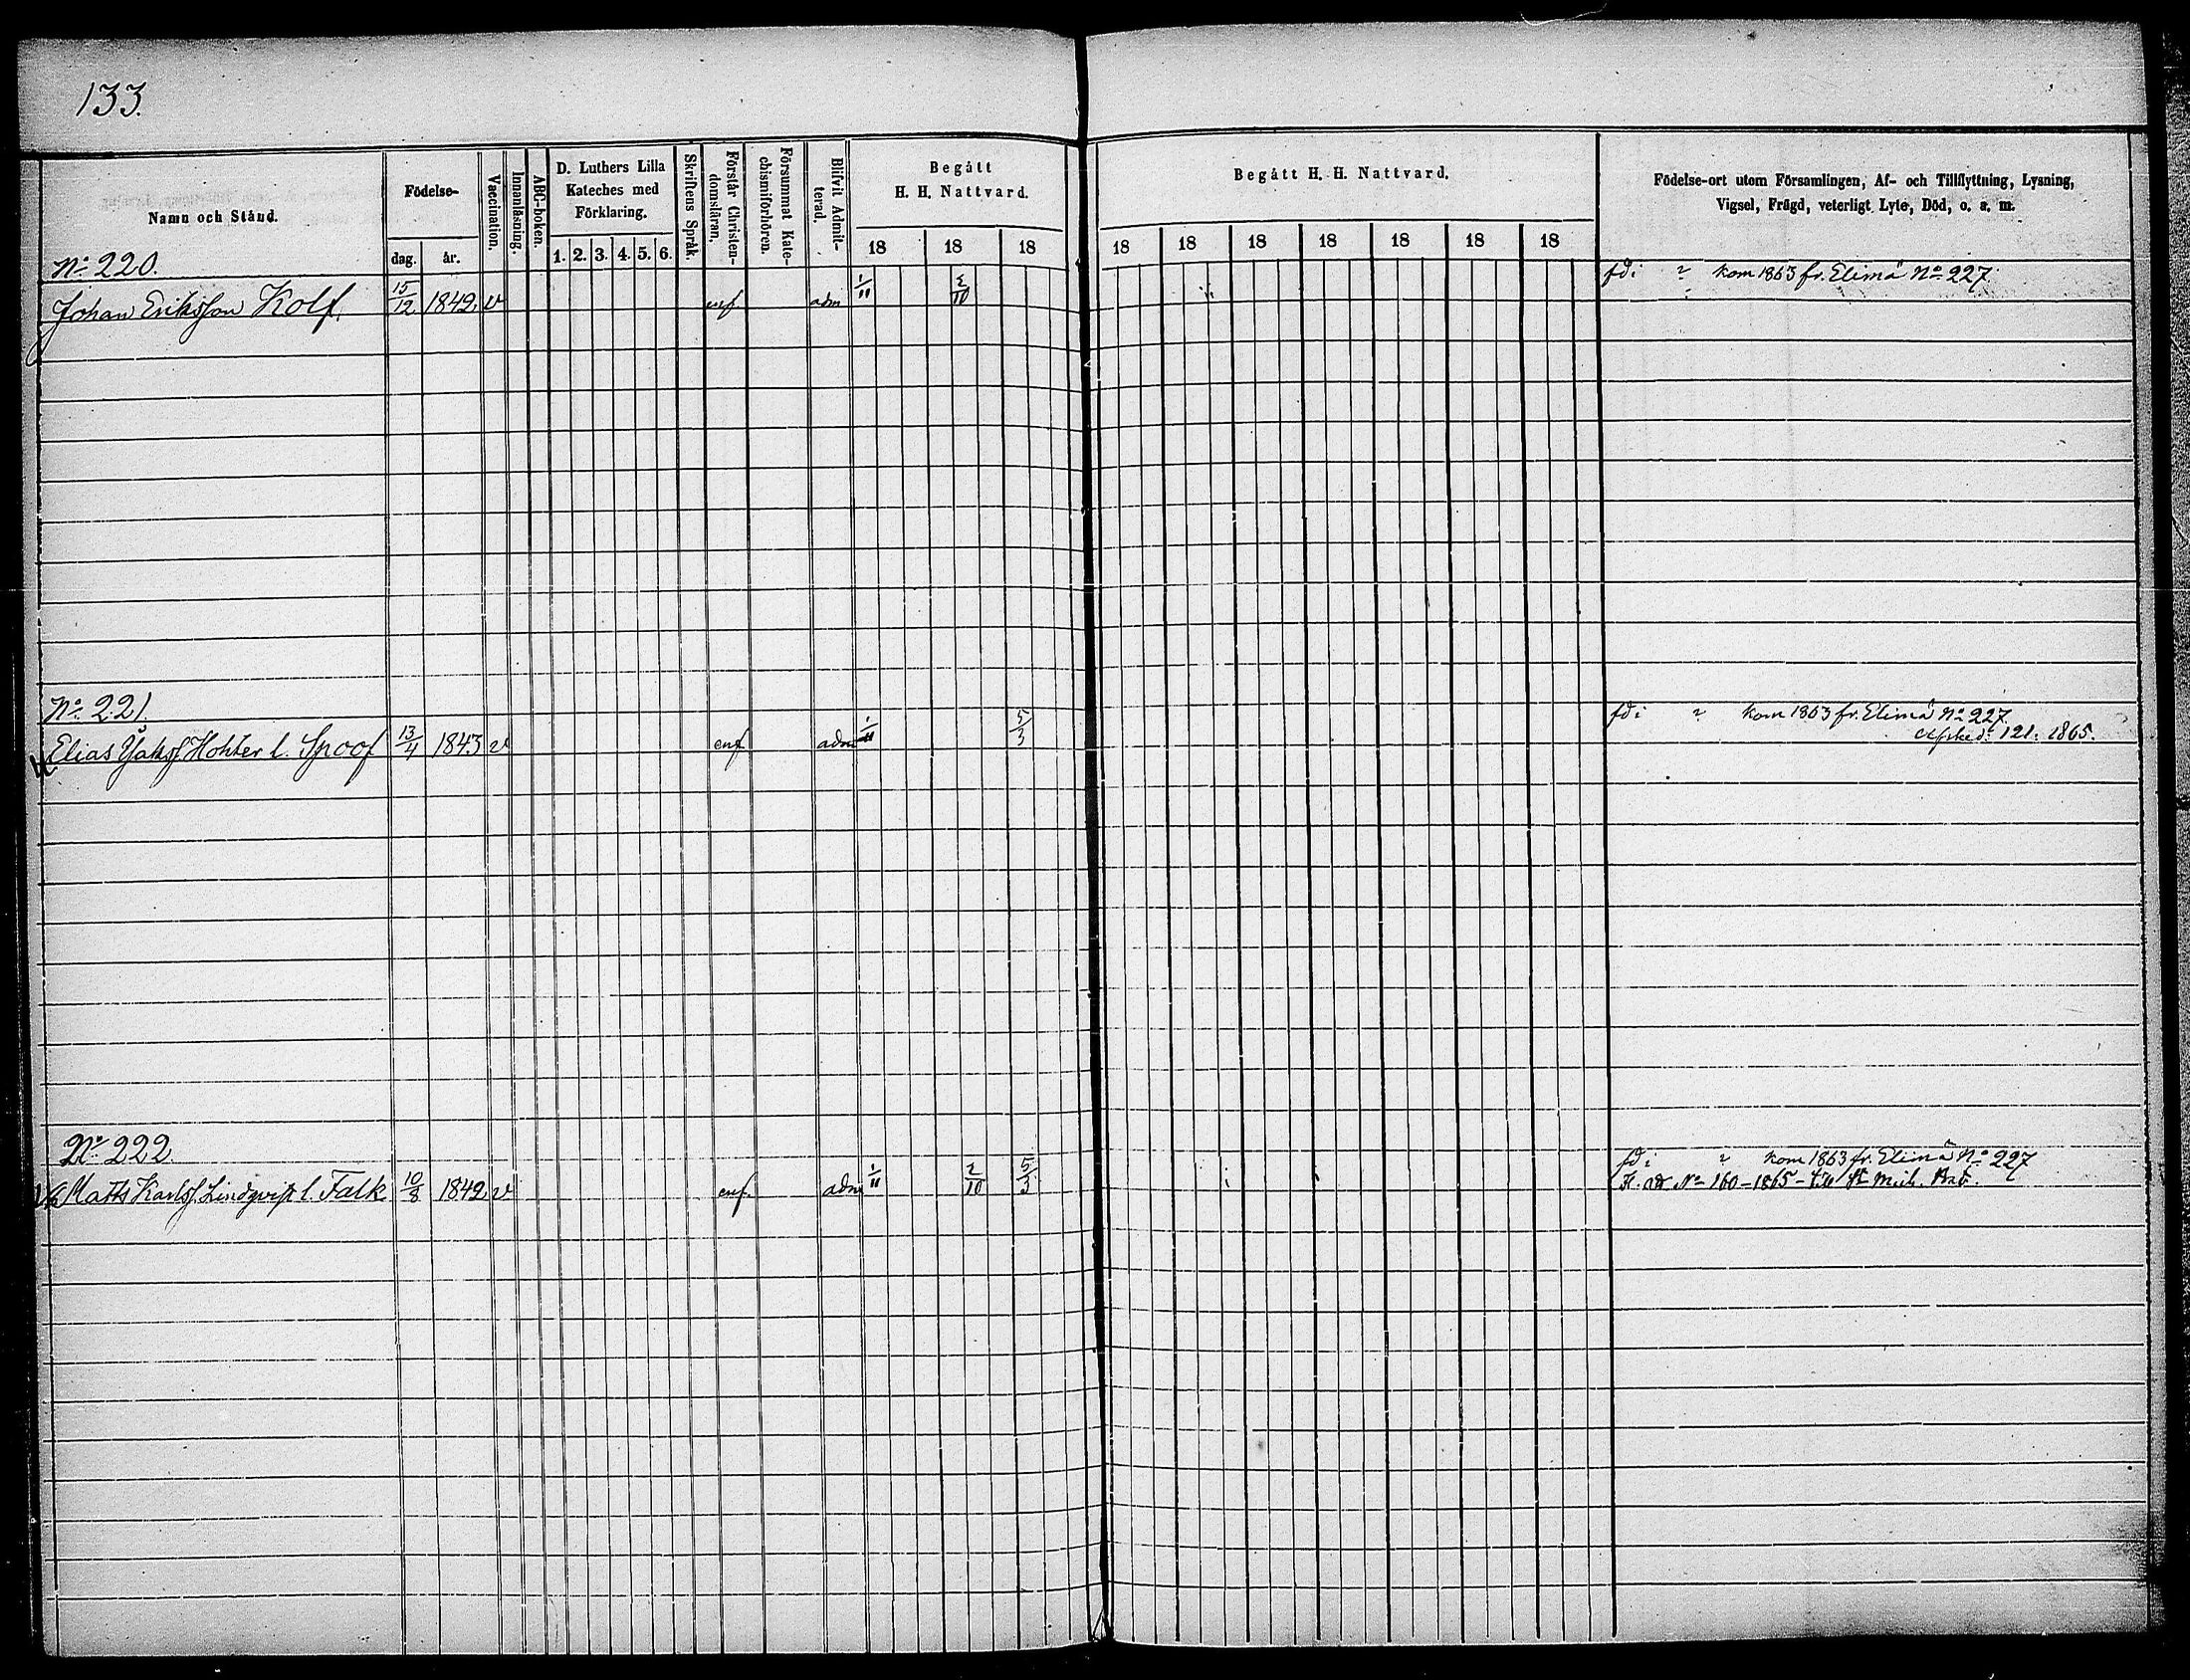 133.
Namn och Stånd.
Födelse-
dag.
år.
Vaccination.
Innanläsning.
ABC-boken.
D. Luthers Lilla
Kateches med
Förklaring.
1. 2. 3. 4. 5. 6.
Skriftens Språk.
Förstår Christen-
domsläran.
Försummat Kate-
chismiförhören.
Blifvit Admit-
terad.
Begått
H. H. Nattvard.
18 18 18
Begått H. H. Nattvard.
18 18 18 18 18 18 18
Födelse-ort utom Församlingen, Af- och Tillflyttning, Lysning,
Vigsel, Frägd, veterligt Lyte, Död, o. s. m.
No 220.
Johan Eriksson Kolf. 15/12 1842. v enf adm 1/11 2/10 fd i kom 1863 fr. Elimä No 227.
No 221.
Elias Hohter l. Spoof 13/4 1843 v enf adm 1/11 5/3 fd i kom 1863 fr. Elimä No 227.
Afsked. 121. 1865.
No 222.
Matts Karlss. Lindqvist l. Falk 10/8 1842 v enf. adm 1/11 2/10 5/3 fd i kom 1863 fr. Elimä No 227
No 160 - 1865 - till St Mich. Bat.